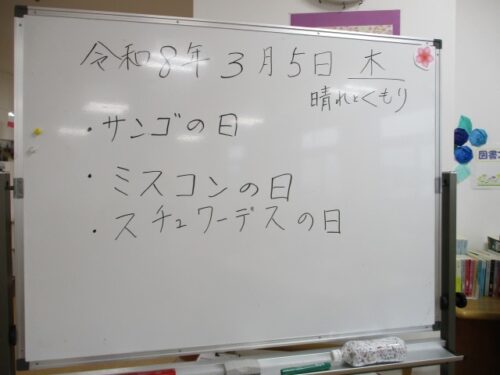 令和8年3月5日 木
晴れとくもり
・サンゴの日
・ミスコンの日
・スチュワーデスの日
図書